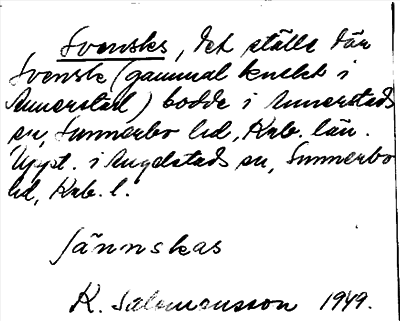 Svensks, det ställe där
Svensk (gammal knekt i
Annerstad) bodde i Annerstads
sn, Sunnerbo hd, Krb. län.
Uppt. i Angelstads sn, Sunnerbo
hd, Krb. l.
Jännskas
K. Salomonsson 1949.